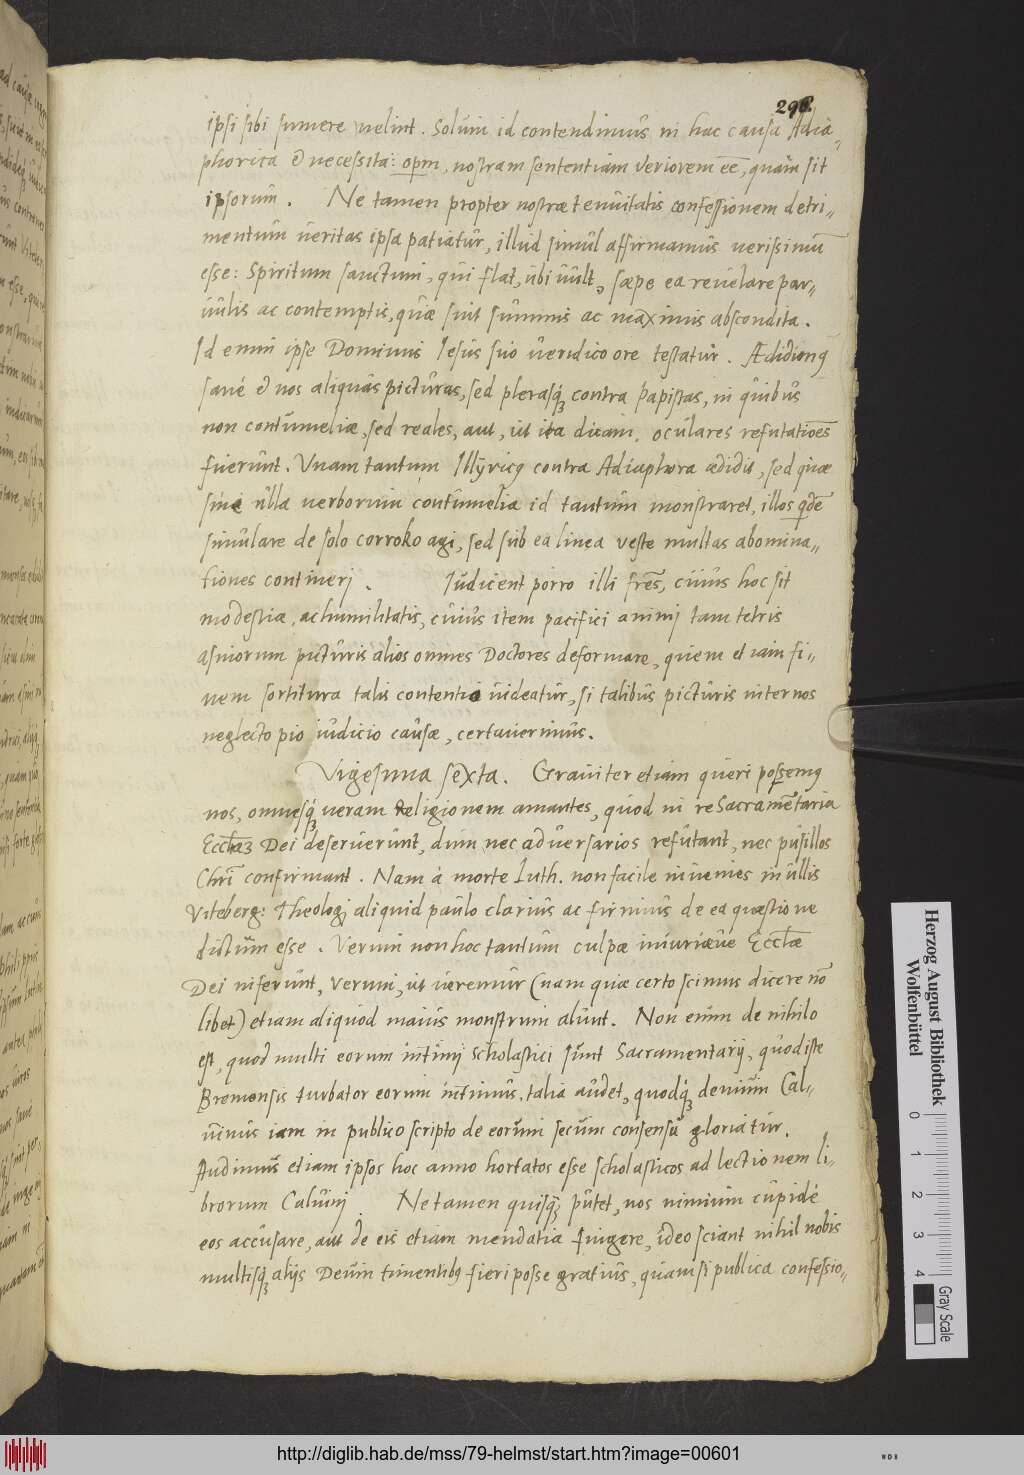 296.
ipsi sibi sumere velint. Solùm id contendimus in hac causa Adia-
phorica & necessita: opm, nostram sententiam veriorem eē, quàm sit
ipsorum. Ne tamen propter nostræ tenuitatis confessionem detri-
mentum veritas ipsa patiatur, illud simul affirmamus verissimū
esse: Spiritum sanctum, qui flat, ubi vult, sæpe ea revelare par-
vulis ac contemptis, quæ sint summis ac maximis abscondita.
Id enim ipse Dominus Iesus suo veridico ore testatur. Ædidimꝰ
sanè & nos aliquas picturas, sed plerasqꝫ contra Papistas, in quibus
non contumeliæ, sed reales, aut, ut ita dicam, oculares refutatiōes
fuerunt. Unam tantum Illyricꝰ contra Adiaphora ædidit, sed quæ
sine ulla verborum contumelia id tantum monstraret, illos qdē
simulare de solo corroko agi, sed sub ea linea veste multas abomina-
tiones contineri. Iudicent porro illi frēs, cuius hoc sit
modestiæ, ac humilitatis, cuius item pacifici animi tam tetris
asinorum picturis alios omnes Doctores deformare, quem etiam fi-
nem sortitura talis contentio videatur, si talibus picturis inter nos
neglecto pio iudicio causæ, certaverimus.
Vigesima sexta. Graviter etiam queri possemꝰ
nos, omnesqꝫ veram Religionem amantes, quòd in re Sacramētaria
Eccl̄iaꝫ Dei deseruerunt, dum nec adversarios refutant, nec pusillos
Chr̄i confirmant. Nam à morte Luth. non facile invenies in ullis
Viteberg: Theologꝭ aliquid paulo clarius ac firmius de ea quæstione
dictum esse. Verum non hoc tantum culpæ iniuriæve Eccl̄æ
Dei inferunt, verum, ut veremur (nam quæ certo scimus dicere nō
libet) etiam aliquod maius monstrum alunt. Non enim de nihilo
est, quod multi eorum intimi scholastici sunt Sacramentarij, quod iste
Bremensis turbator eorum intimus, talia audet, quodqꝫ deniqꝫ Cal-
vinus iam in publico scripto de eorum secum consensu gloriatur.
Audimus etiam ipsos hoc anno hortatos esse scholasticos ad lectionem li-
brorum Calvini. Ne tamen quisqꝫ putet, nos nimium cupidè
eos accusare, aut de eis etiam mendatia fingere, ideo sciant nihil nobis
multisqꝫ alijs Deum timentibꝰ fieri posse gratius, quàm si publica confessio-
Herzog August Bibliothek
Wolfenbüttel
0
1
2
3
4
Gray Scale
http://diglib.hab.de/mss/79-helmst/start.htm?image=00601